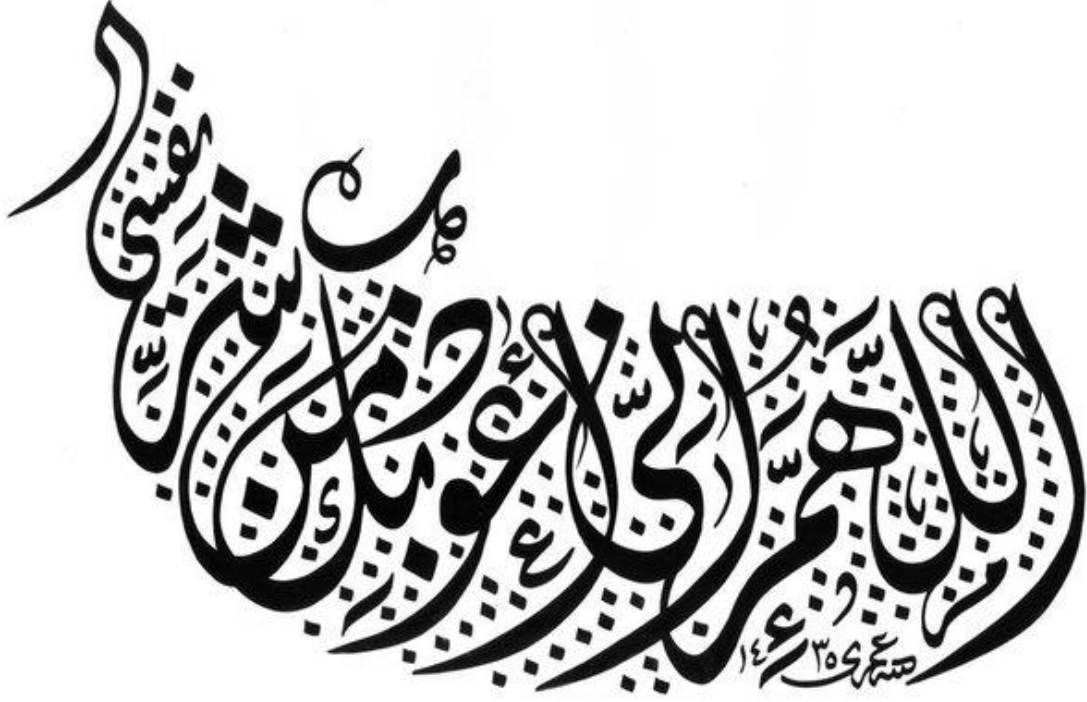 اللهم إني أعوذ بك من شر نفسي
١٤٣٥